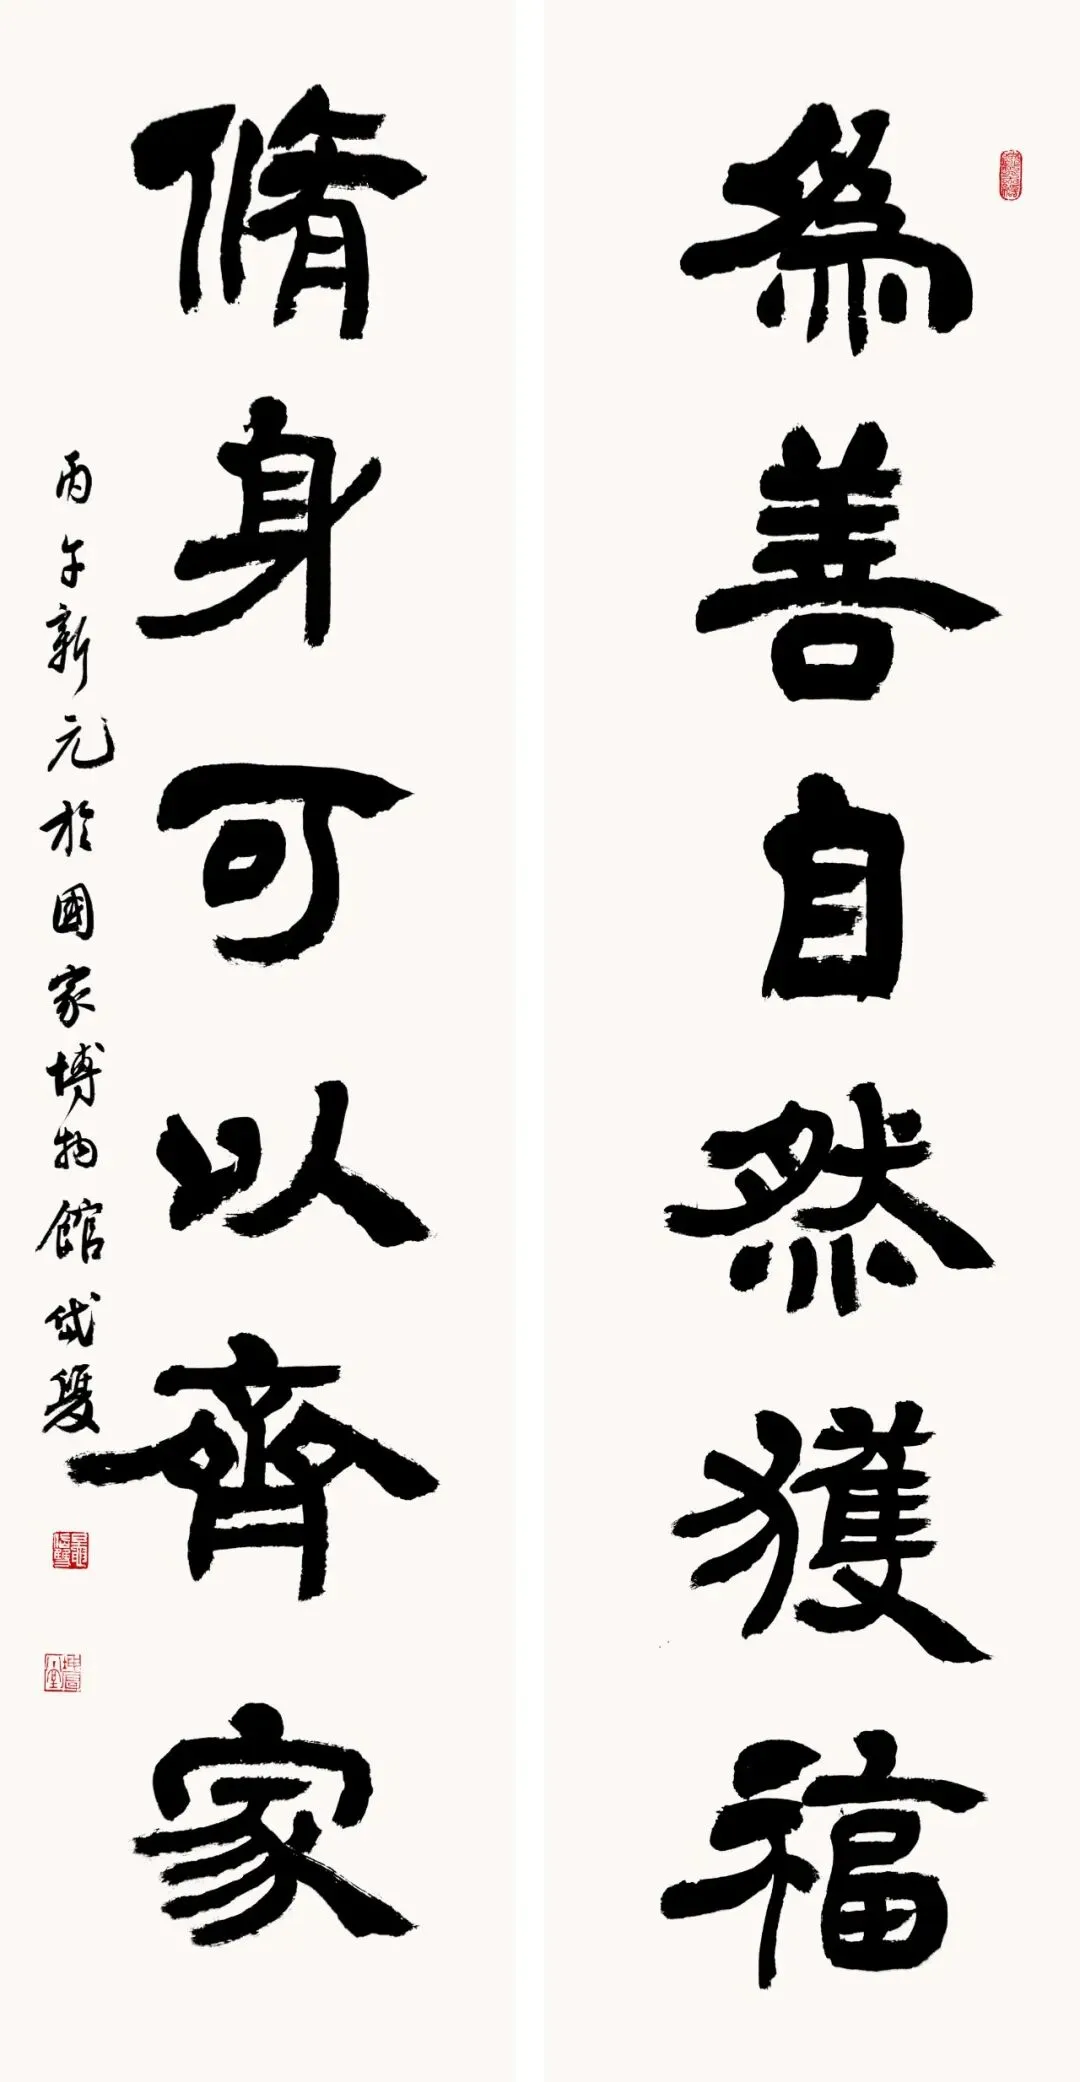 為善自然獲福
脩身可以齊家
丙午新元於國家博物館岱雙